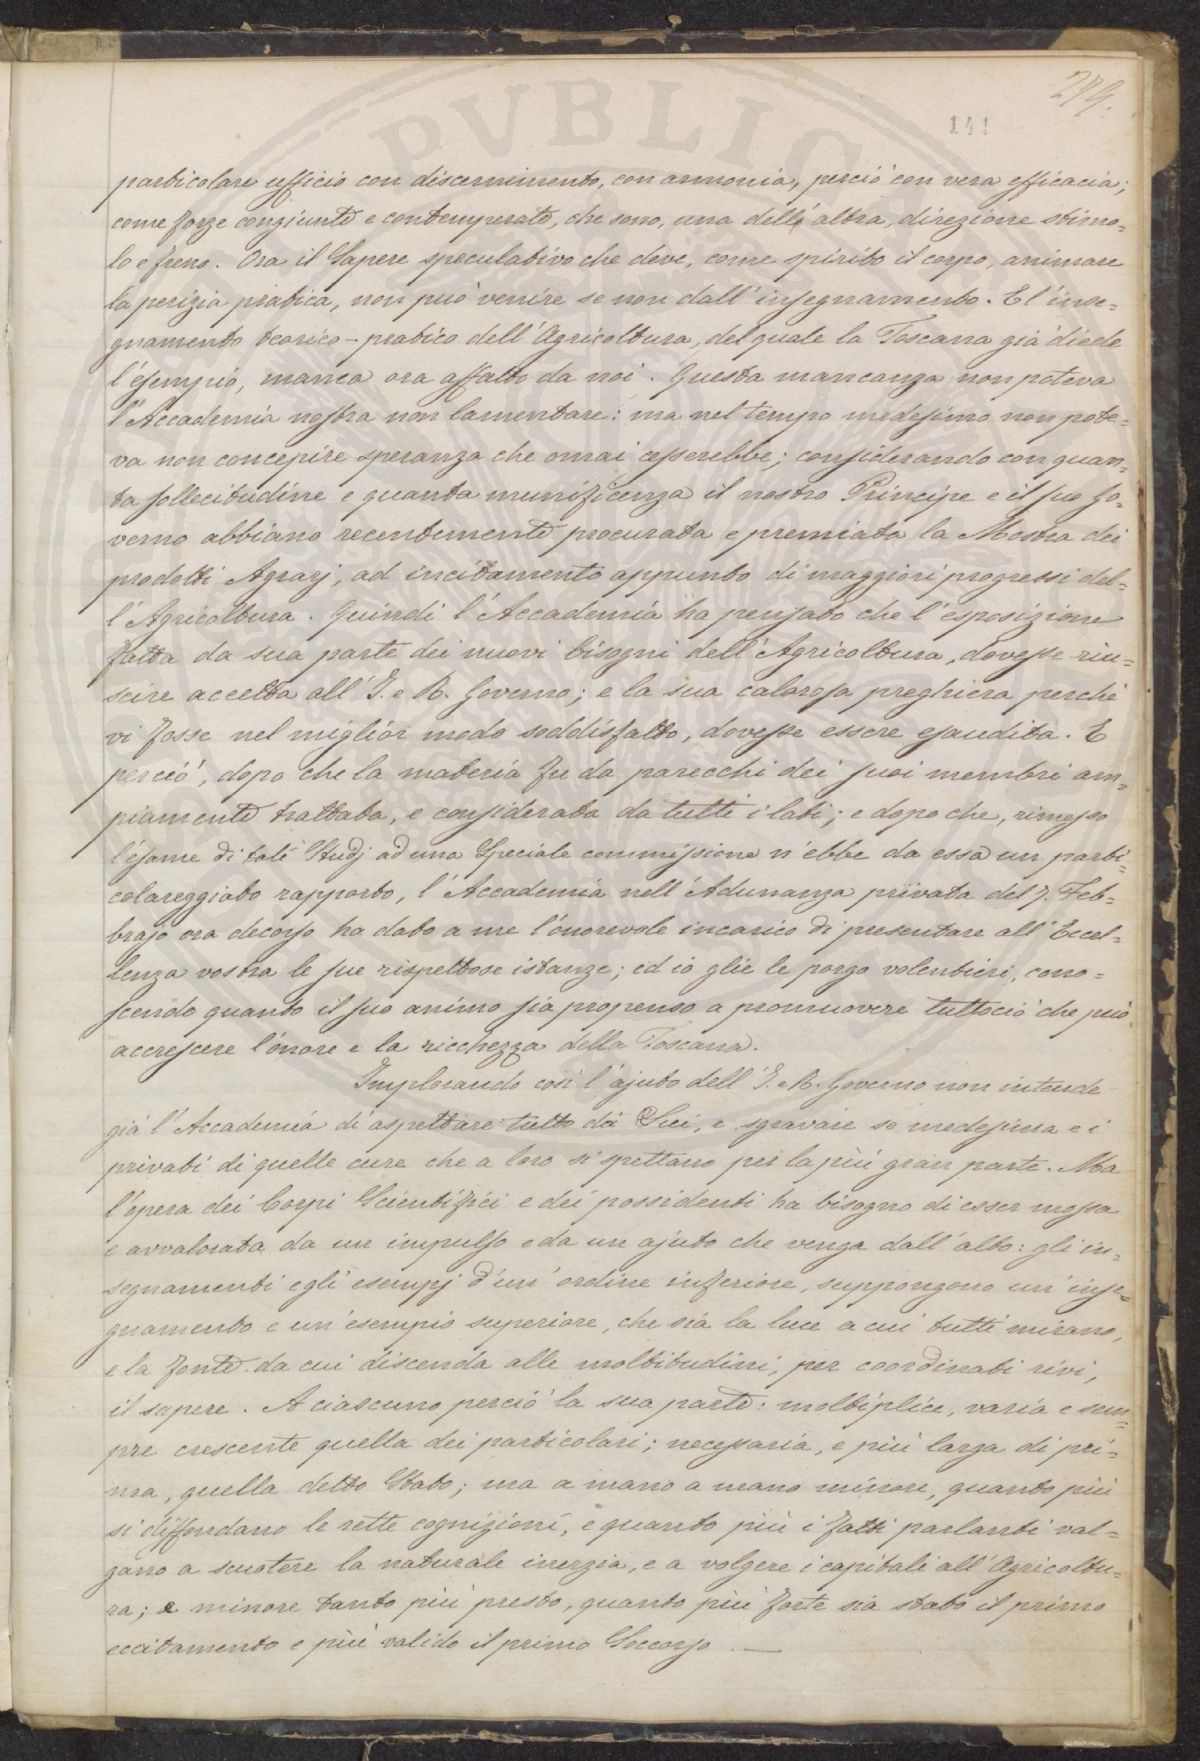 279.
141
PVBLICA
particolare ufficio con discernimento, con armonia, perciò con vera efficacia;
come forze congiunte e contemperate, che sono, una dell'altra, direzione stimo=
lo e freno. Ora il Sapere speculativo che deve, come spirito il corpo, animare
la perizia pratica, non può venire se non dall'insegnamento. E l'inse=
gnamento teorico-pratico dell'Agricoltura, del quale la Toscana già diede
l'esempio, manca ora affatto da noi. Questa mancanza non poteva
l'Accademia nostra non lamentare: ma nel tempo medesimo non pote=
va non concepire speranza che omai cesserebbe; considerando con quan=
ta sollecitudine e quanta munificenza il nostro Principe e il suo Go=
verno abbiano recentemente procurata e premiata la Mostra dei
prodotti Agrarj, ad incitamento appunto di maggiori progressi del=
l'Agricoltura. Quindi l'Accademia ha pensato che l'esposizione
fatta da sua parte dei nuovi bisogni dell'Agricoltura, dovesse riu=
scire accetta all'I. e R. Governo; e la sua calorosa preghiera perchè
vi fosse nel miglior modo soddisfatto, dovesse essere esaudita. E
perciò, dopo che la materia fu da parecchi dei suoi membri am=
piamente trattata, e considerata da tutti i lati; e dopo che, rimesso
l'esame di tali Studj ad una Speciale commissione n'ebbe da essa un parti=
colareggiato rapporto, l'Accademia nell'Adunanza privata del 7. Feb=
brajo ora decorso ha dato a me l'onorevole incarico di presentare all'Eccel=
lenza vostra le sue rispettose istanze; ed io glie le porgo volentieri, cono=
scendo quanto il suo animo sia propenso a promuovere tuttociò che può
accrescere l'onore e la ricchezza della Toscana.
Implorando così l'ajuto dell'I. e R. Governo non intende
già l'Accademia di aspettare tutto da Lui, e sgravare se medesima e i
privati di quelle cure che a loro si spettano per la più gran parte. Ma
l'opera dei Corpi Scientifici e dei possidenti ha bisogno di esser mossa
e avvalorata da un impulso e da un ajuto che venga dall'alto: gli in=
segnamenti e gli esempj d'un'ordine inferiore, suppongono un'inse=
gnamento e un'esempio superiore, che sia la luce a cui tutti mirano,
e la fonte da cui discenda alle moltitudini, per coordinati rivi,
il sapere. A ciascuno perciò la sua parte: moltiplice, varia e sem=
pre crescente quella dei particolari; necessaria, e più larga di pri=
ma, quella dello Stato; ma a mano a mano minore, quanto più
si diffondano le rette cognizioni, e quanto più i fatti parlanti val=
gano a scuotere la naturale inerzia, e a volgere i capitali all'Agricoltu=
ra; e minore tanto più presto, quanto più forte sia stato il primo
eccitamento e più valido il primo Soccorso. —